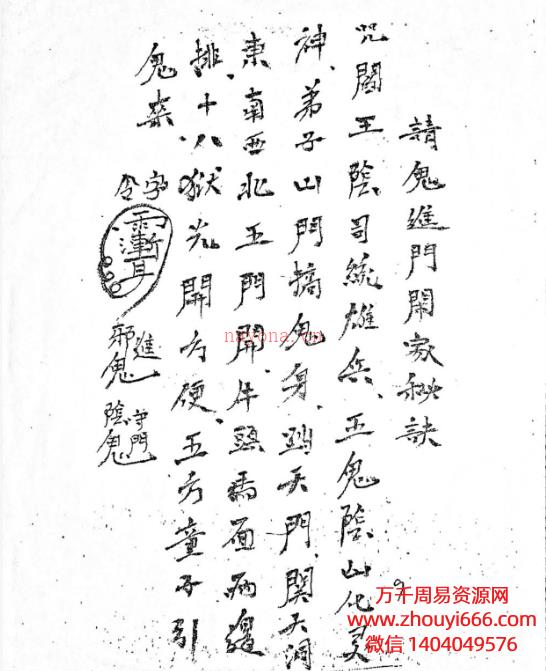 請鬼進門鬧家秘訣
咒閻王陰司統雄兵、五鬼陰山化灵
神、弟子山門搞鬼身、踏天門、関天洞
東南西北五門開、牛頭馬面两邊
排、十八獄光開方便、五方童子引
鬼來
令字
漸耳
進
邪鬼
守門
陰鬼
nayona.cn
万千周易资源网
www.zhouyi666.com
微信 1404049576